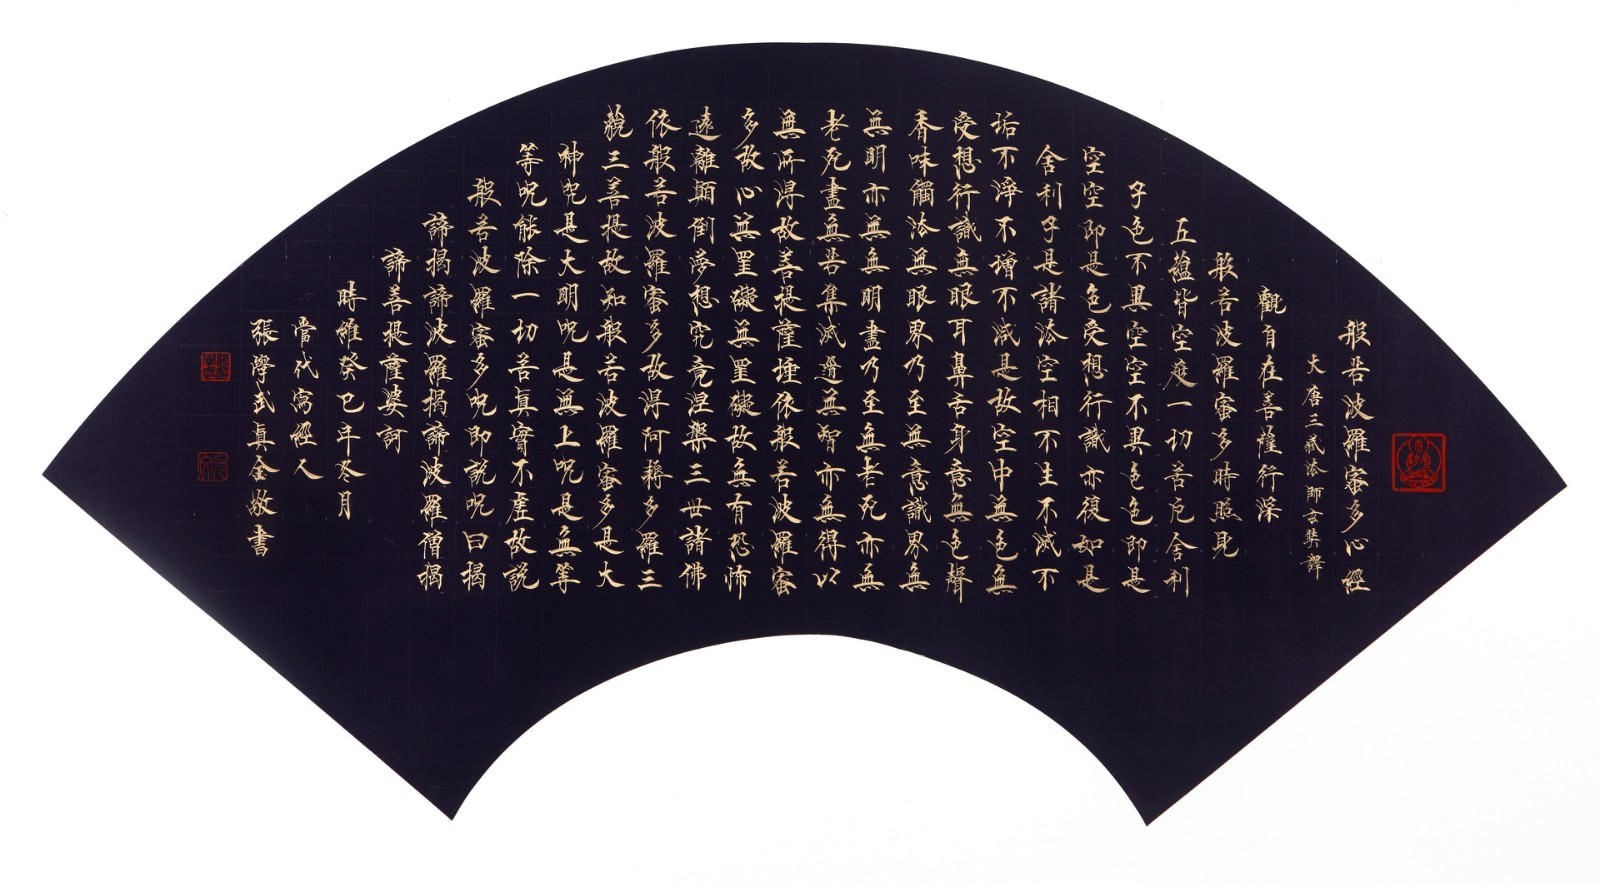 般若波羅蜜多心經
大唐三藏法師玄奘譯
觀自在菩薩行深
般若波羅蜜多時照見
五蘊皆空度一切苦厄舍利
子色不異空空不異色色即是
空空即是色受想行識亦復如是
舍利子是諸法空相不生不滅不
垢不淨不增不減是故空中無色無
受想行識無眼耳鼻舌身意無色聲
香味觸法無眼界乃至無意識界無
無明亦無無明盡乃至無老死亦無
老死盡無苦集滅道無智亦無得以
無所得故菩提薩埵依般若波羅蜜
多故心無罣礙無罣礙故無有恐怖
遠離顛倒夢想究竟涅槃三世諸佛
依般若波羅蜜多故得阿耨多羅三
藐三菩提故知般若波羅蜜多是大
神咒是大明呪是無上呪是無等
等呪能除一切苦眞實不虛故說
般若波羅蜜多呪即說呪曰揭
諦揭諦波羅揭諦波羅僧揭
諦菩提薩婆訶
時維癸巳年冬月
當代寫經人
張學武眞金敬書